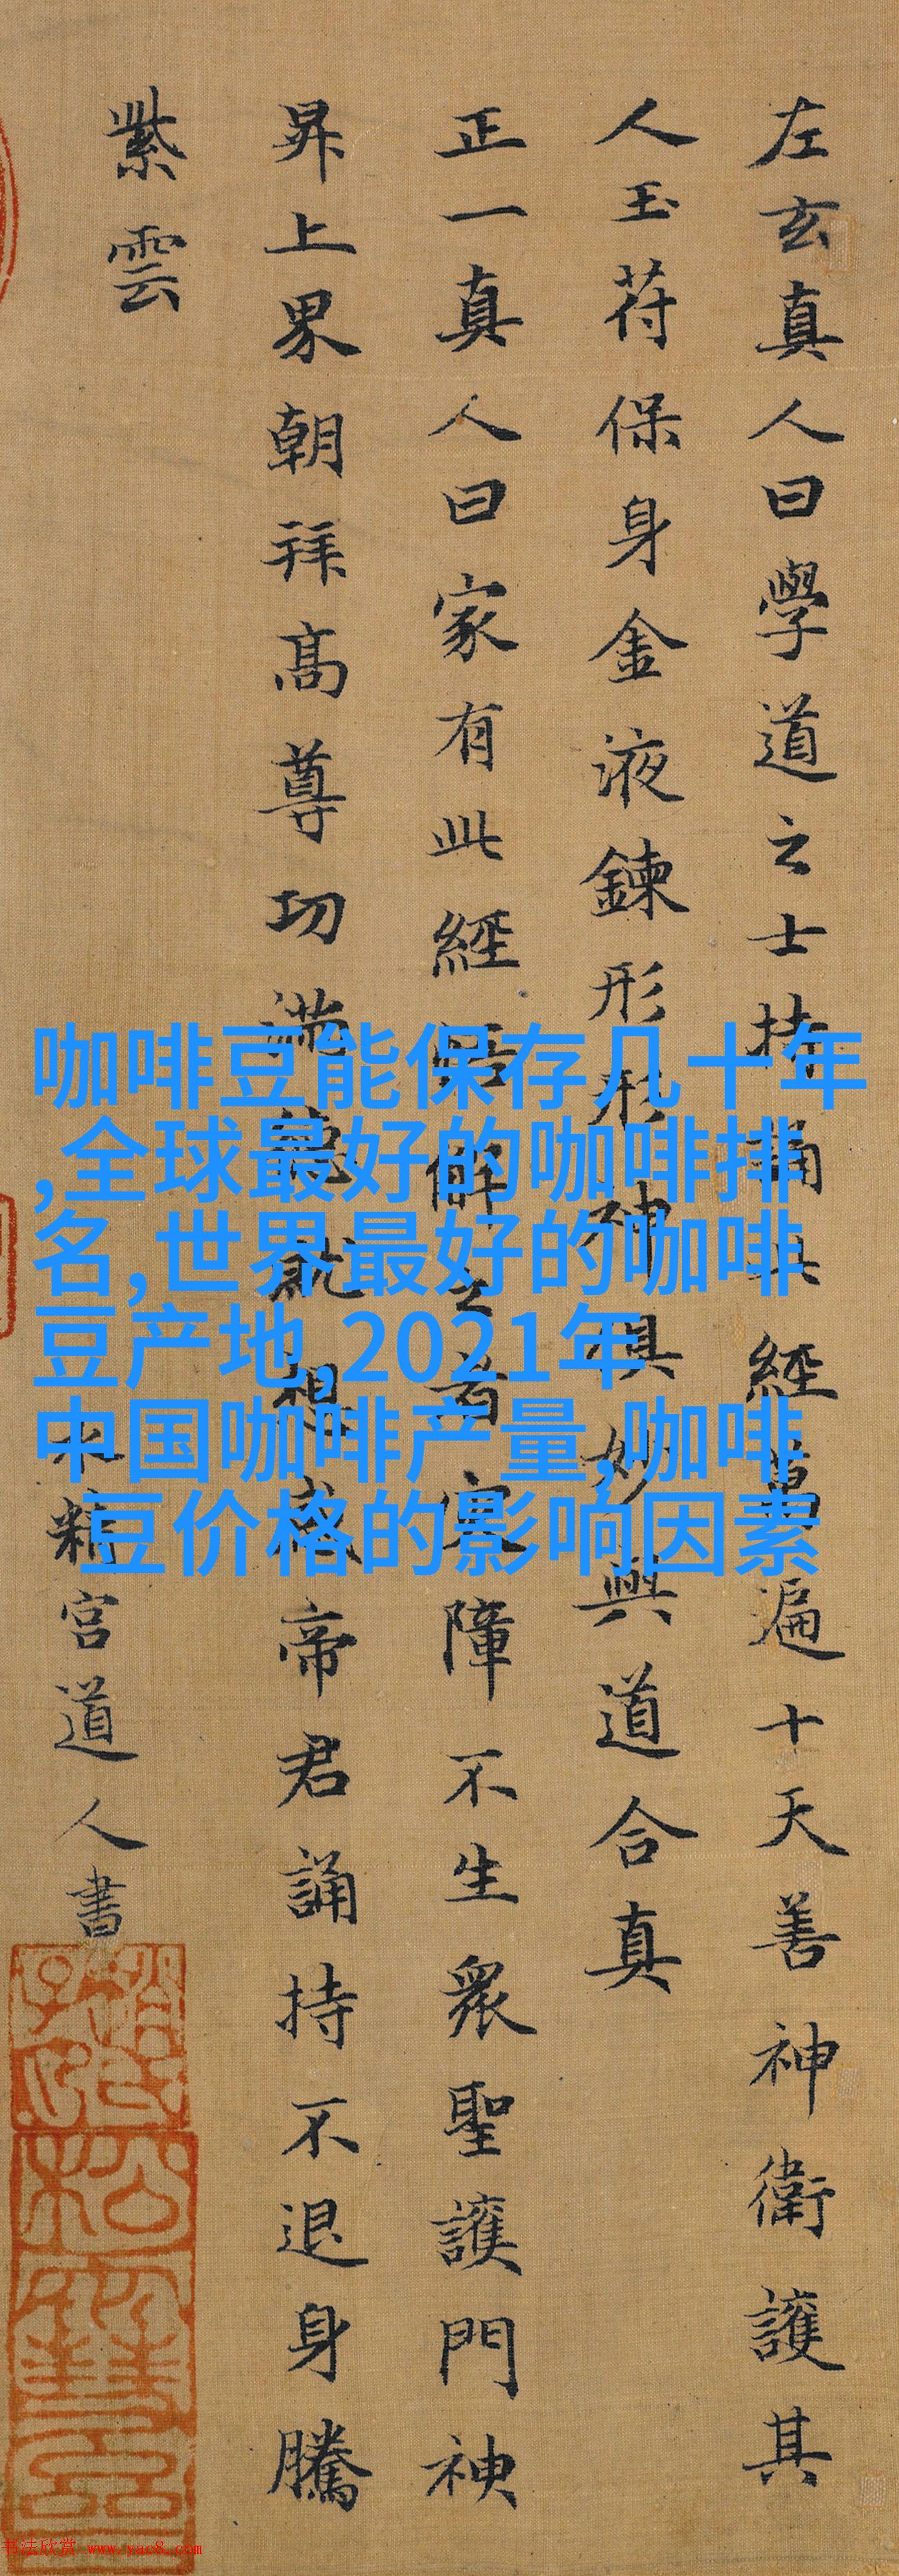 左玄真人曰學道之士持誦此經萬遍十天善神衛護其
人玉苻保身金液鍊形形神俱妙與道合真
正一真人曰家有此經悟解之者灾障不生衆聖護門神
昇上界朝拜高尊功滿德就想感帝君誦持不退身騰
紫雲
水精宮道人書
咖啡豆能保存几十年
,全球最好的咖啡排
名,世界最好的咖啡
豆产地,2021年
中国咖啡产量,咖啡
豆价格的影响因素
书法欣赏 www.yac8.com